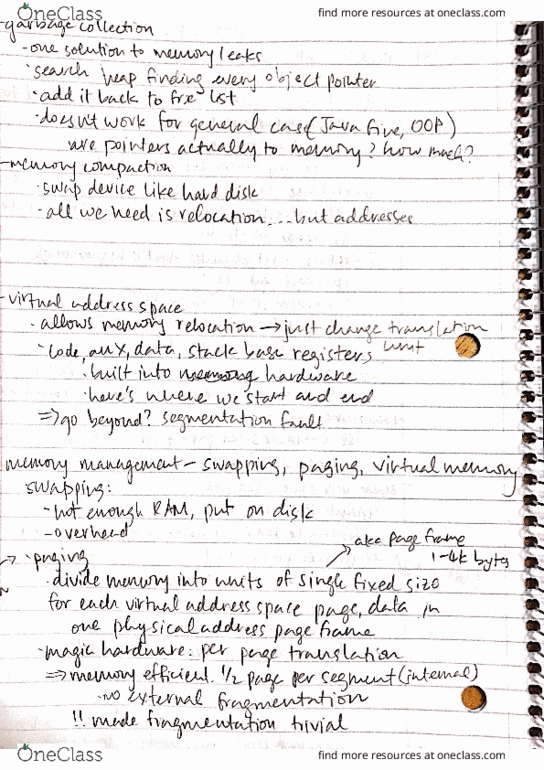 OneClass find more resources at oneclass.com
-garbage collection
-one solution to memory leaks
·search heap finding every object pointer
·add it back to free list
·doesn't work for general case (Java fine, OOP)
are pointers actually to memory? how much?
-memory compaction
·swap device like hard disk
-all we need is relocation...but addresses
-virtual address space
·allows memory relocation → just change translation
unit
·code, aux, data, stack base registers
·built into hardware
·here's where we start and end
⇒ go beyond? segmentation fault
memory management - swapping, paging, virtual memory
swapping:
-not enough RAM, put on disk
-overhead
aka page frame
1-4k bytes
→ ·paging
·divide memory into units of single fixed size
for each virtual address space page, data in
one physical address page frame
·magic hardware: per page translation
⇒ memory efficient. 1/2 page per segment (internal)
-no external fragmentation
!! made fragmentation trivial
OneClass find more resources at oneclass.com